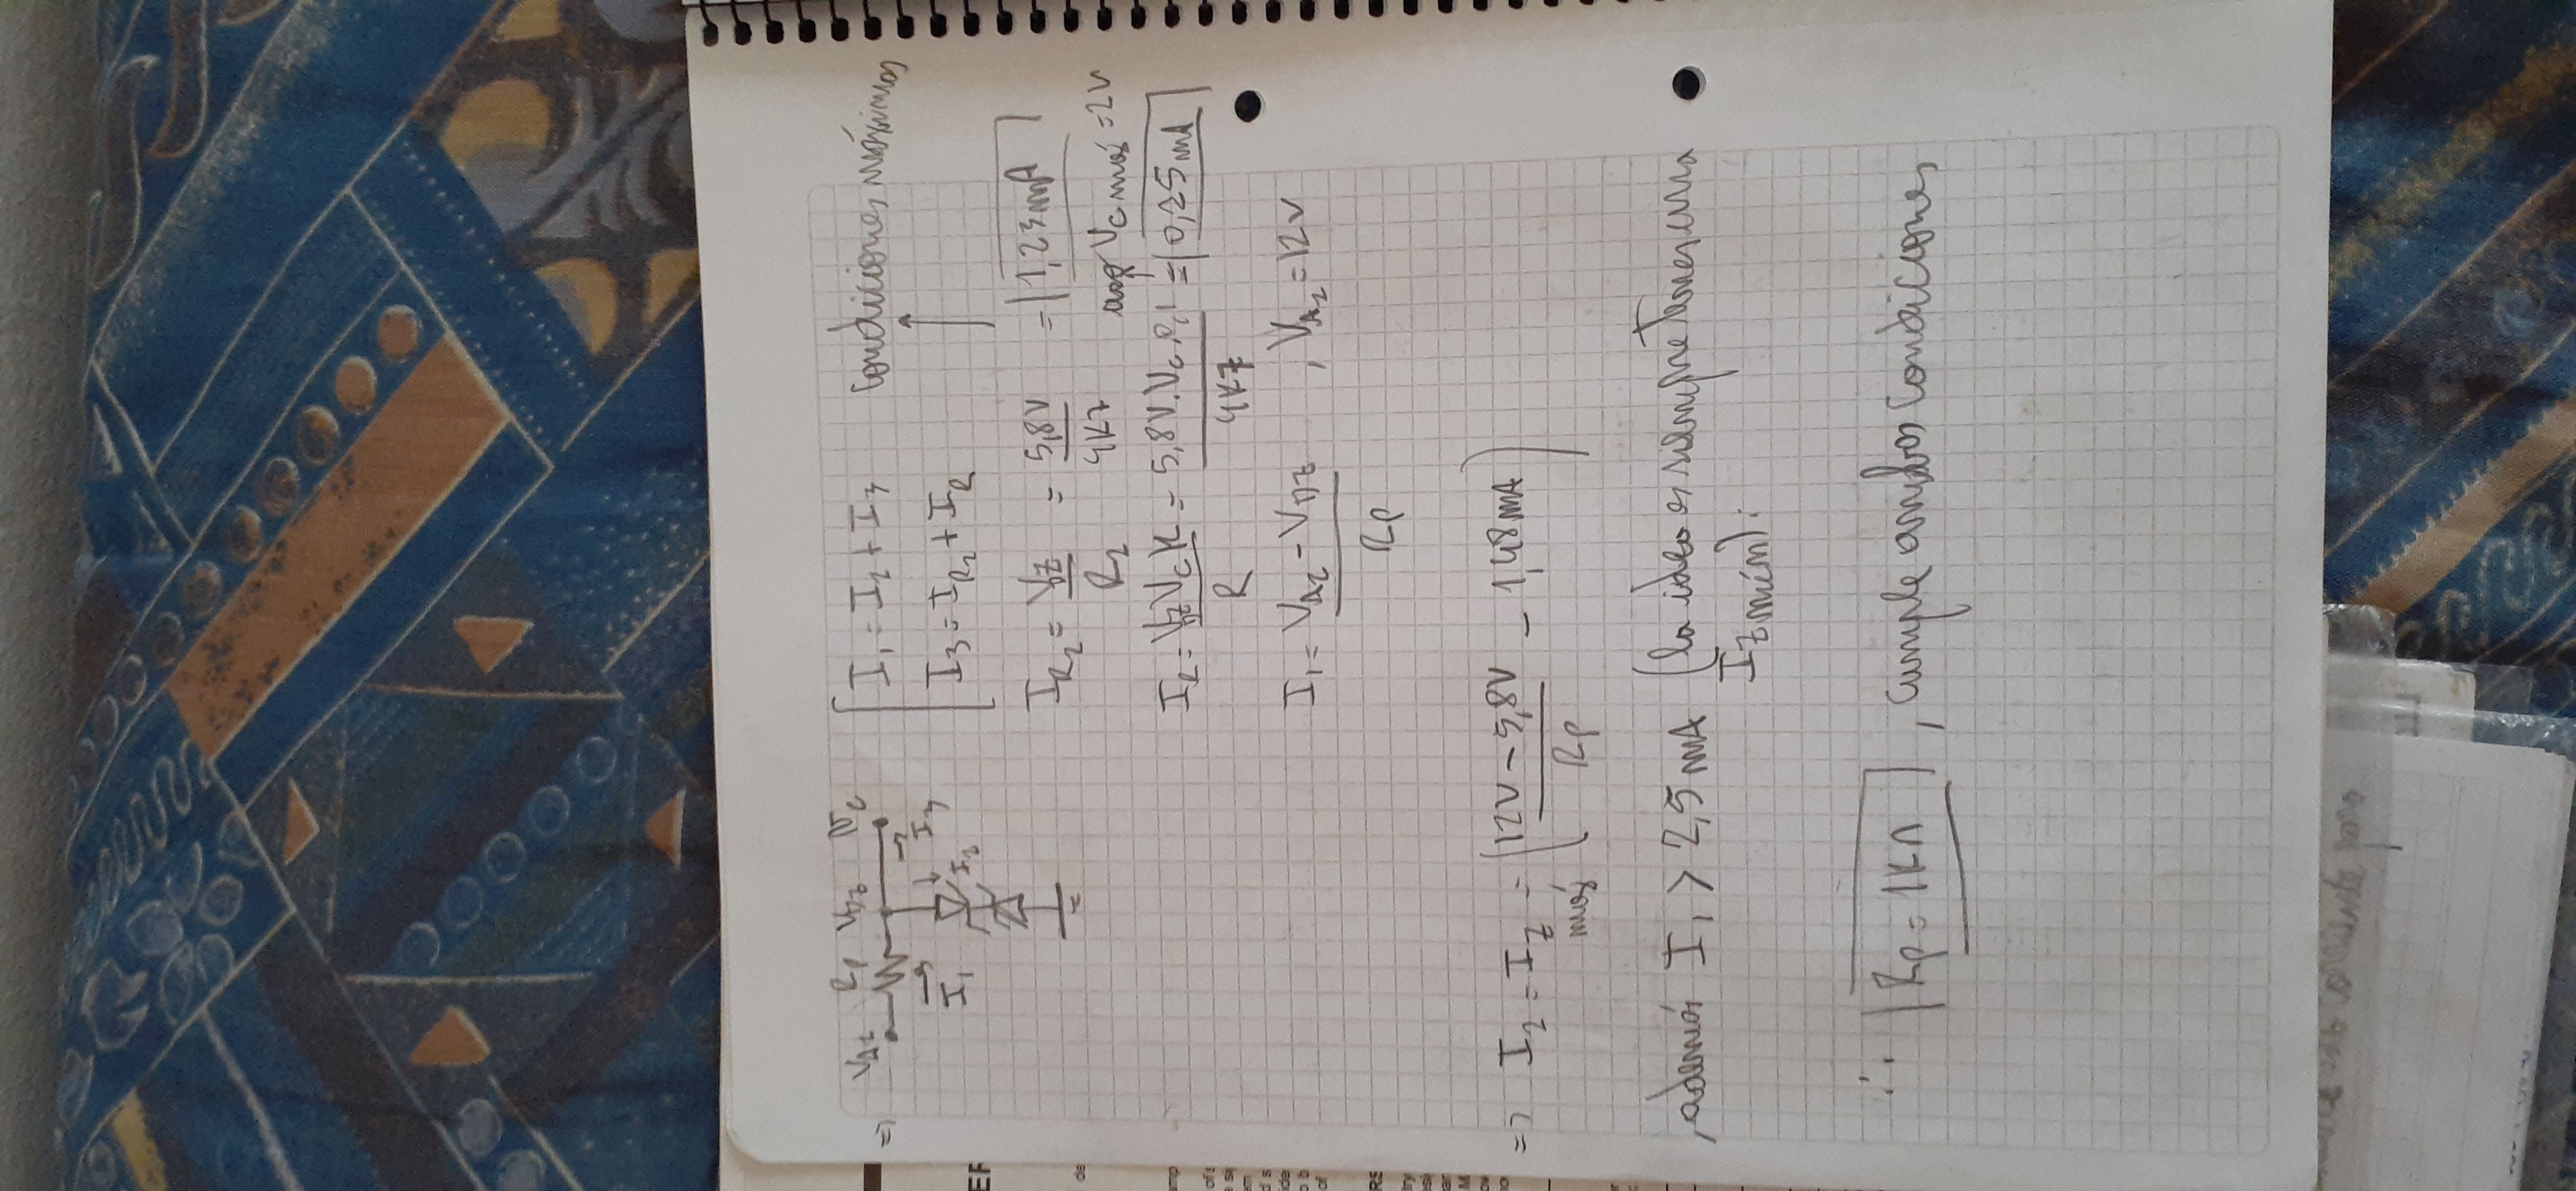 => VA2 Rp VDz N2
I1 I2 I3
I1 = I2 + I3 condiciones máximas
I3 = IR2 + IR
IR2 = VDz / R2 = 5,8V / 4K7 = 1,23mA
VC máx = 2V
IR = VDz VC K / R = 5,8V.VC.0,1 / 4K7 = 0,25mA
I1 = VA2 - VDz / Rp , VA2 = 12V
=> I2 = IZ máx = ( 12V - 5,8V / Rp - 1,48mA )
, además I1 > 2,5mA (la idea es siempre tener una
IZ mín).
∴ Rp = 1KΩ , cumple ambas condiciones
ER
de
amp
of s
RS